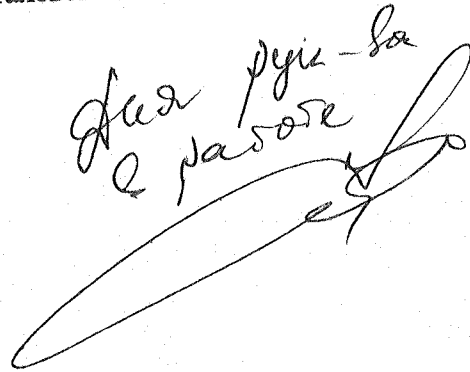 Для рук-ва
в работе